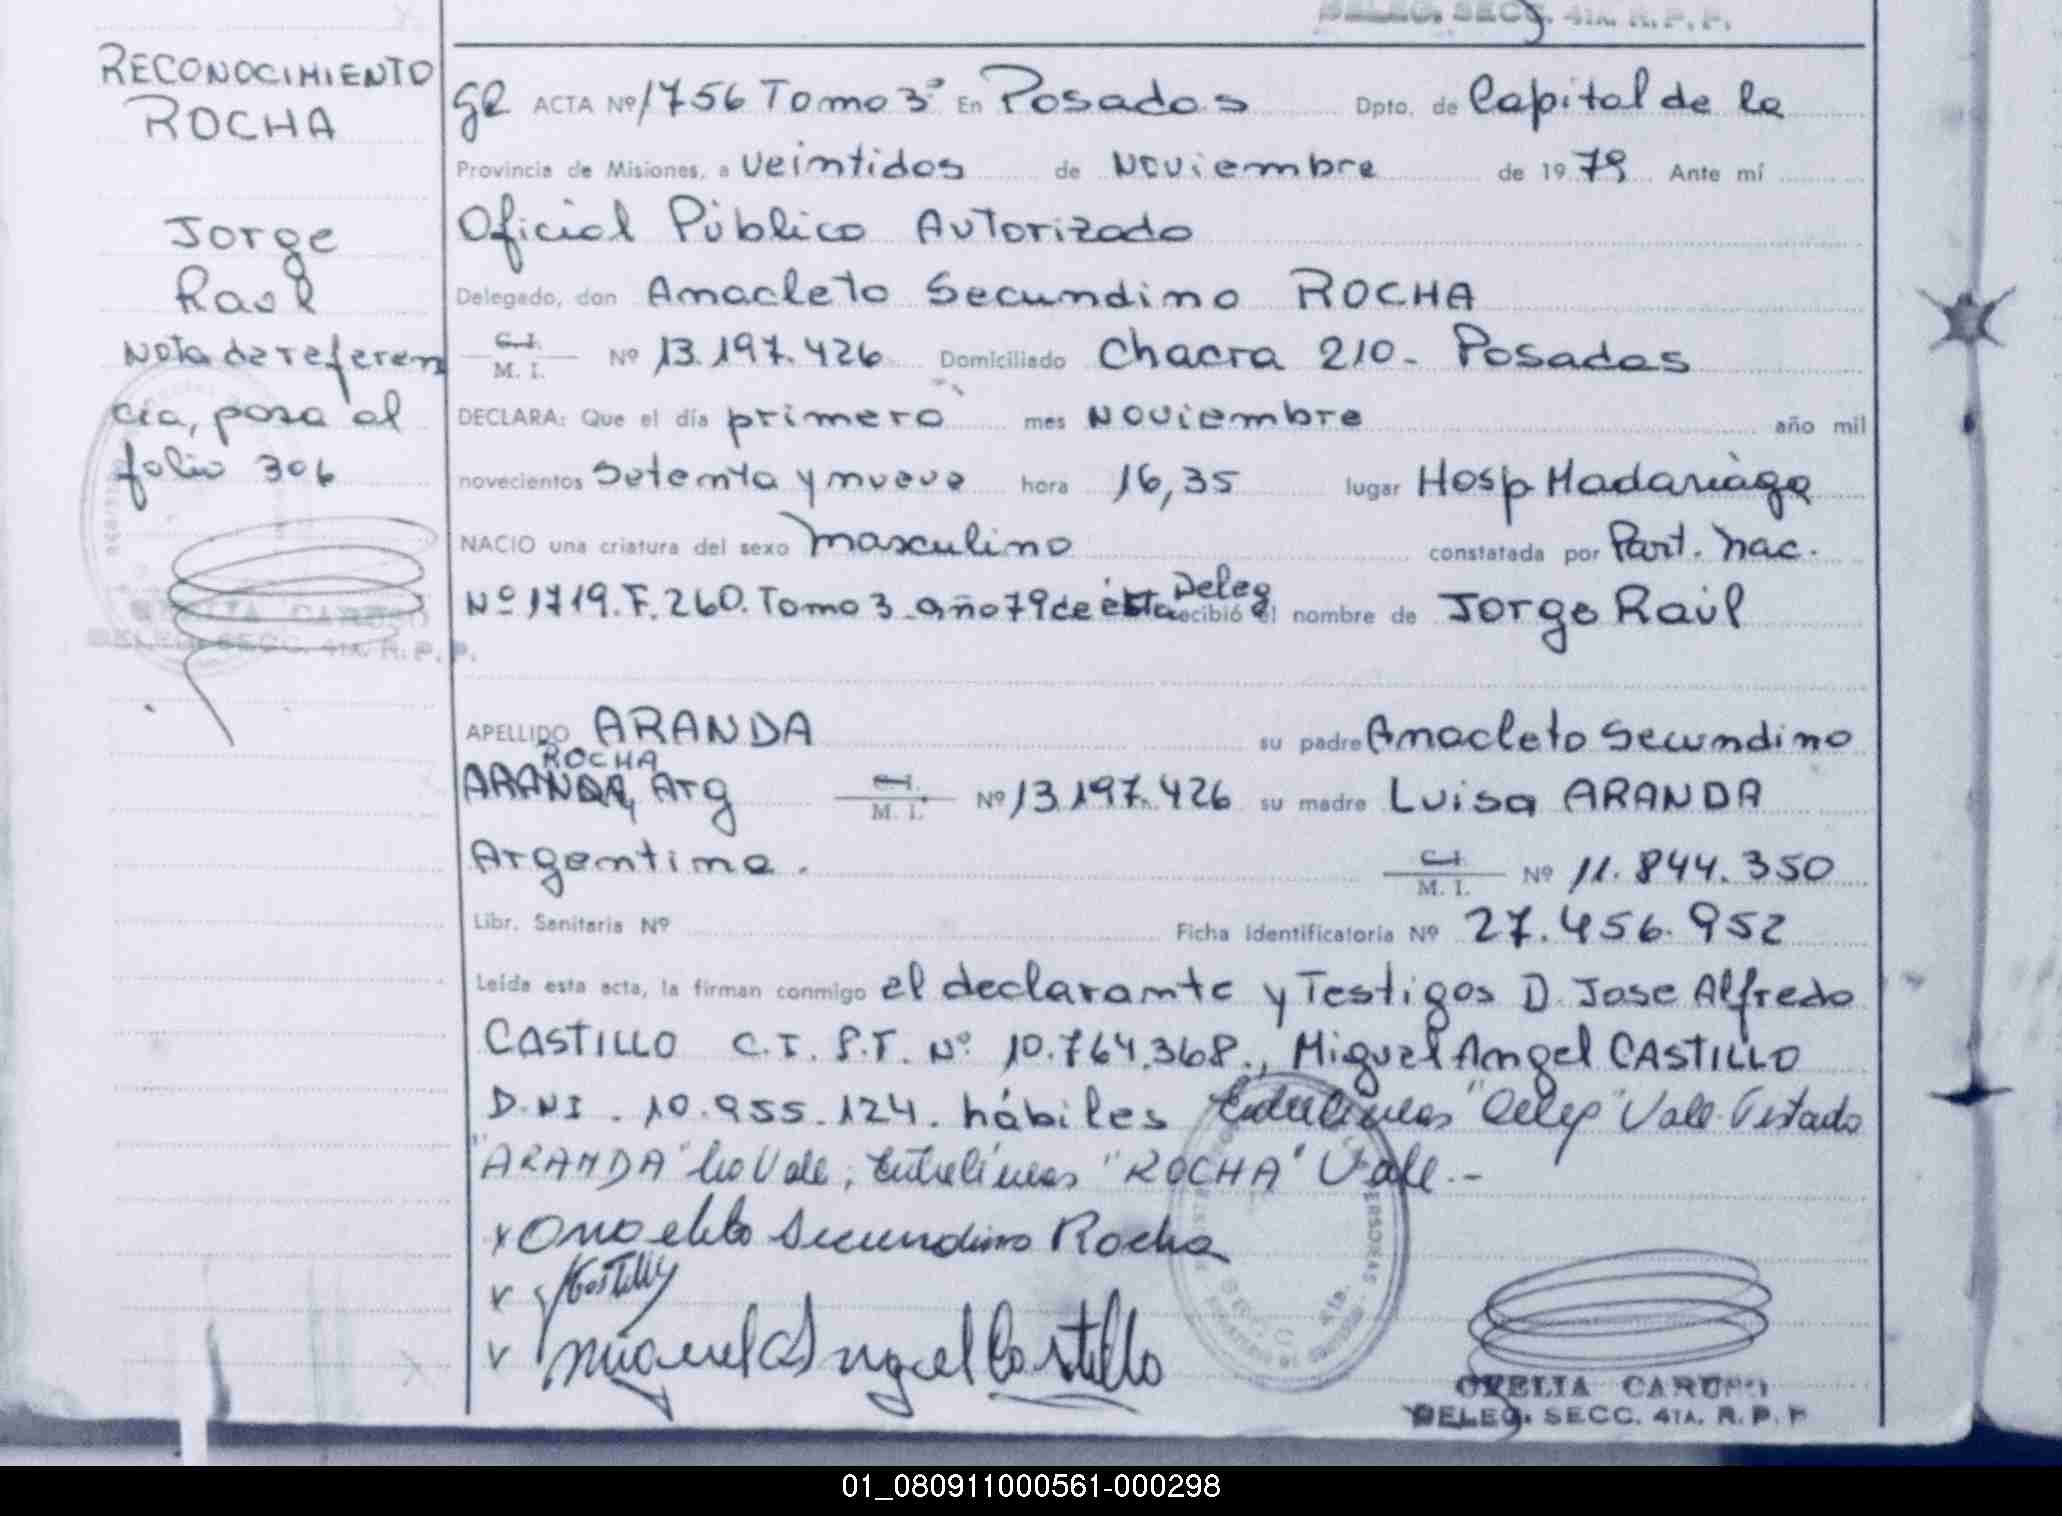 DELEG. SECC. 4TA. R. P. P.
RECONOCIMIENTO
ROCHA
Jorge
Raul
Nota de referen
cia, pasa al
folio 306
OFELIA CARUSO
DELEG. SECC. 4TA. R. P. P.
GR ACTA Nº 1756 Tomo 3º En Posadas Dpto. de Capital de la
Provincia de Misiones, a veintidos de Noviembre de 1979 Ante mí
Oficial Público Autorizado
Delegado, don Anacleto Secundino ROCHA
C.I. / M. I. Nº 13.197.426 Domiciliado Chacra 210- Posadas
DECLARA: Que el día primero mes Noviembre año mil
novecientos Setenta y nueve hora 16,35 lugar Hosp Madariaga
NACIO una criatura del sexo masculino constatada por Part. Nac.
Nº 1719. F. 260. Tomo 3 año 79 de ésta Deleg recibió el nombre de Jorge Raúl
APELLIDO ARANDA su padre Anacleto Secundino
ROCHA
ARANDA, Arg C.I. / M. I. Nº 13.197.426 su madre Luisa ARANDA
Argentina. C.I. / M. I. Nº 11.844.350
Libr. Sanitaria Nº Ficha Identificatoria Nº 27.456.952
Leída esta acta, la firman conmigo el declarante y Testigos D. Jose Alfredo
CASTILLO C.I. P.F. Nº 10.764.368., Miguel Angel CASTILLO
D.NI. 10.955.124. hábiles Entrelíneas "Deleg" Vale. Testado
"ARANDA" No Vale, Entrelíneas "ROCHA" Vale.-
x Anacleto Secundino Rocha
Castillo
Miguel Angel Castillo
OFELIA CARUSO
DELEG. SECC. 4TA. R. P. P
01_080911000561-000298